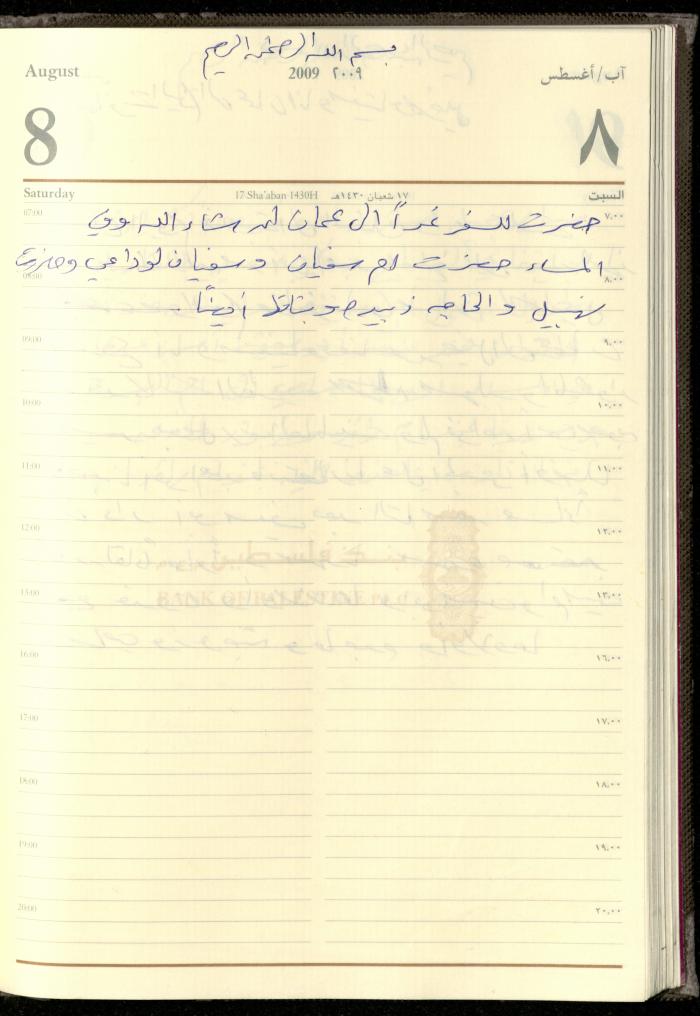 بسم الله الرحمن الرحيم
August 2009 ٢٠٠٩ آب/أغسطس
8 ٨
Saturday 17 Sha'aban 1430H ١٧ شعبان ١٤٣٠هـ السبت
07:00 ٧,٠٠
حضرت للسفر غداً الى عمان ان شاء الله وفي
المساء حضرت ام سفيان وسفيان لوداعي وحضرت
08:00 ٨,٠٠
نهيل والحاجه زبيده ايضاً.
09:00 ٩,٠٠
10:00 ١٠,٠٠
11:00 ١١,٠٠
12:00 ١٢,٠٠
15:00 ١٣,٠٠
BANK OF PALESTINE
16:00 ١٦,٠٠
17:00 ١٧,٠٠
18:00 ١٨,٠٠
19:00 ١٩,٠٠
20:00 ٢٠,٠٠